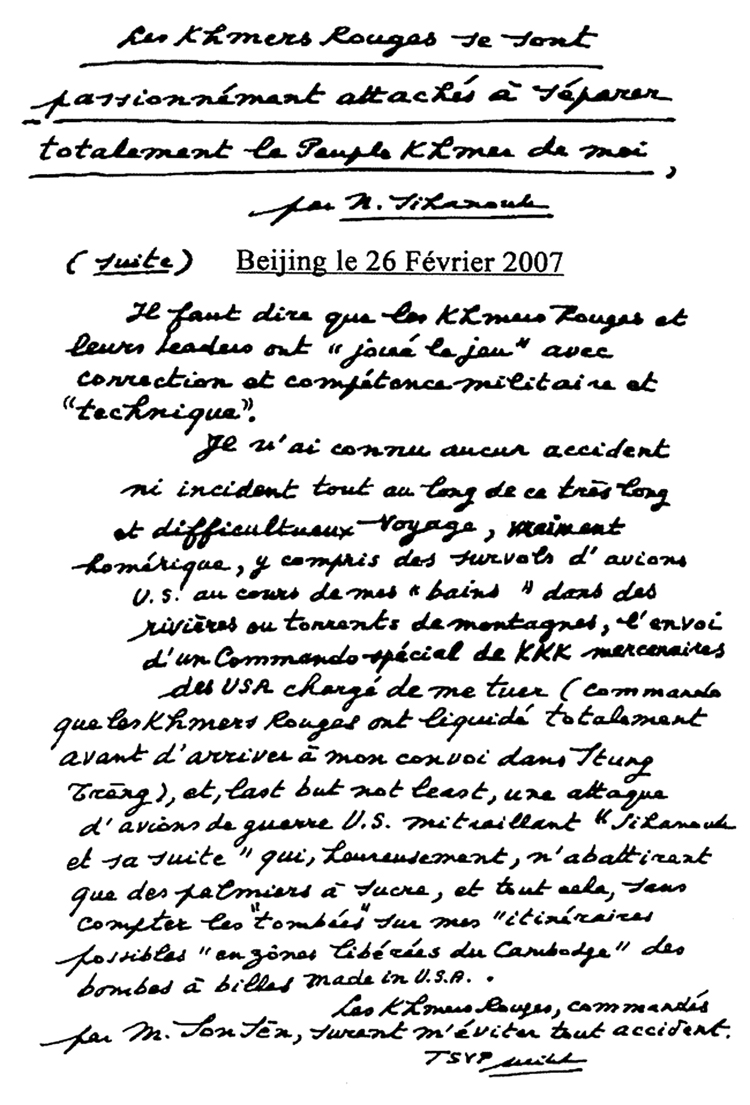 Les Khmers Rouges se sont
passionnément attachés à séparer
totalement le Peuple Khmer de moi,
par N. Sihanouk
(suite) Beijing le 26 Février 2007
Il faut dire que les Khmers Rouges et
leurs leaders ont "joué le jeu" avec
correction et compétence militaire et
"technique".
Je n'ai connu aucun accident
ni incident tout au long de ce très long
et difficultueux voyage, vraiment
homérique, y compris des survols d'avions
U.S. au cours de mes "bains" dans des
rivières ou torrents de montagnes, l'envoi
d'un Commando-spécial de KKK mercenaires
des USA chargé de me tuer (commando
que les Khmers Rouges ont liquidé totalement
avant d'arriver à mon convoi dans Stung
Trèng), et, last but not least, une attaque
d'avions de guerre U.S. mitraillant "Sihanouk
et sa suite" qui, heureusement, n'abattirent
que des palmiers à sucre, et tout cela, sans
compter les "tombées" sur mes "itinéraires
possibles "en zônes libérées du Cambodge" des
bombes à billes made in U.S.A..
Les Khmers Rouges, commandés
par M. Son Sën, surent m'éviter tout accident.
TSVP